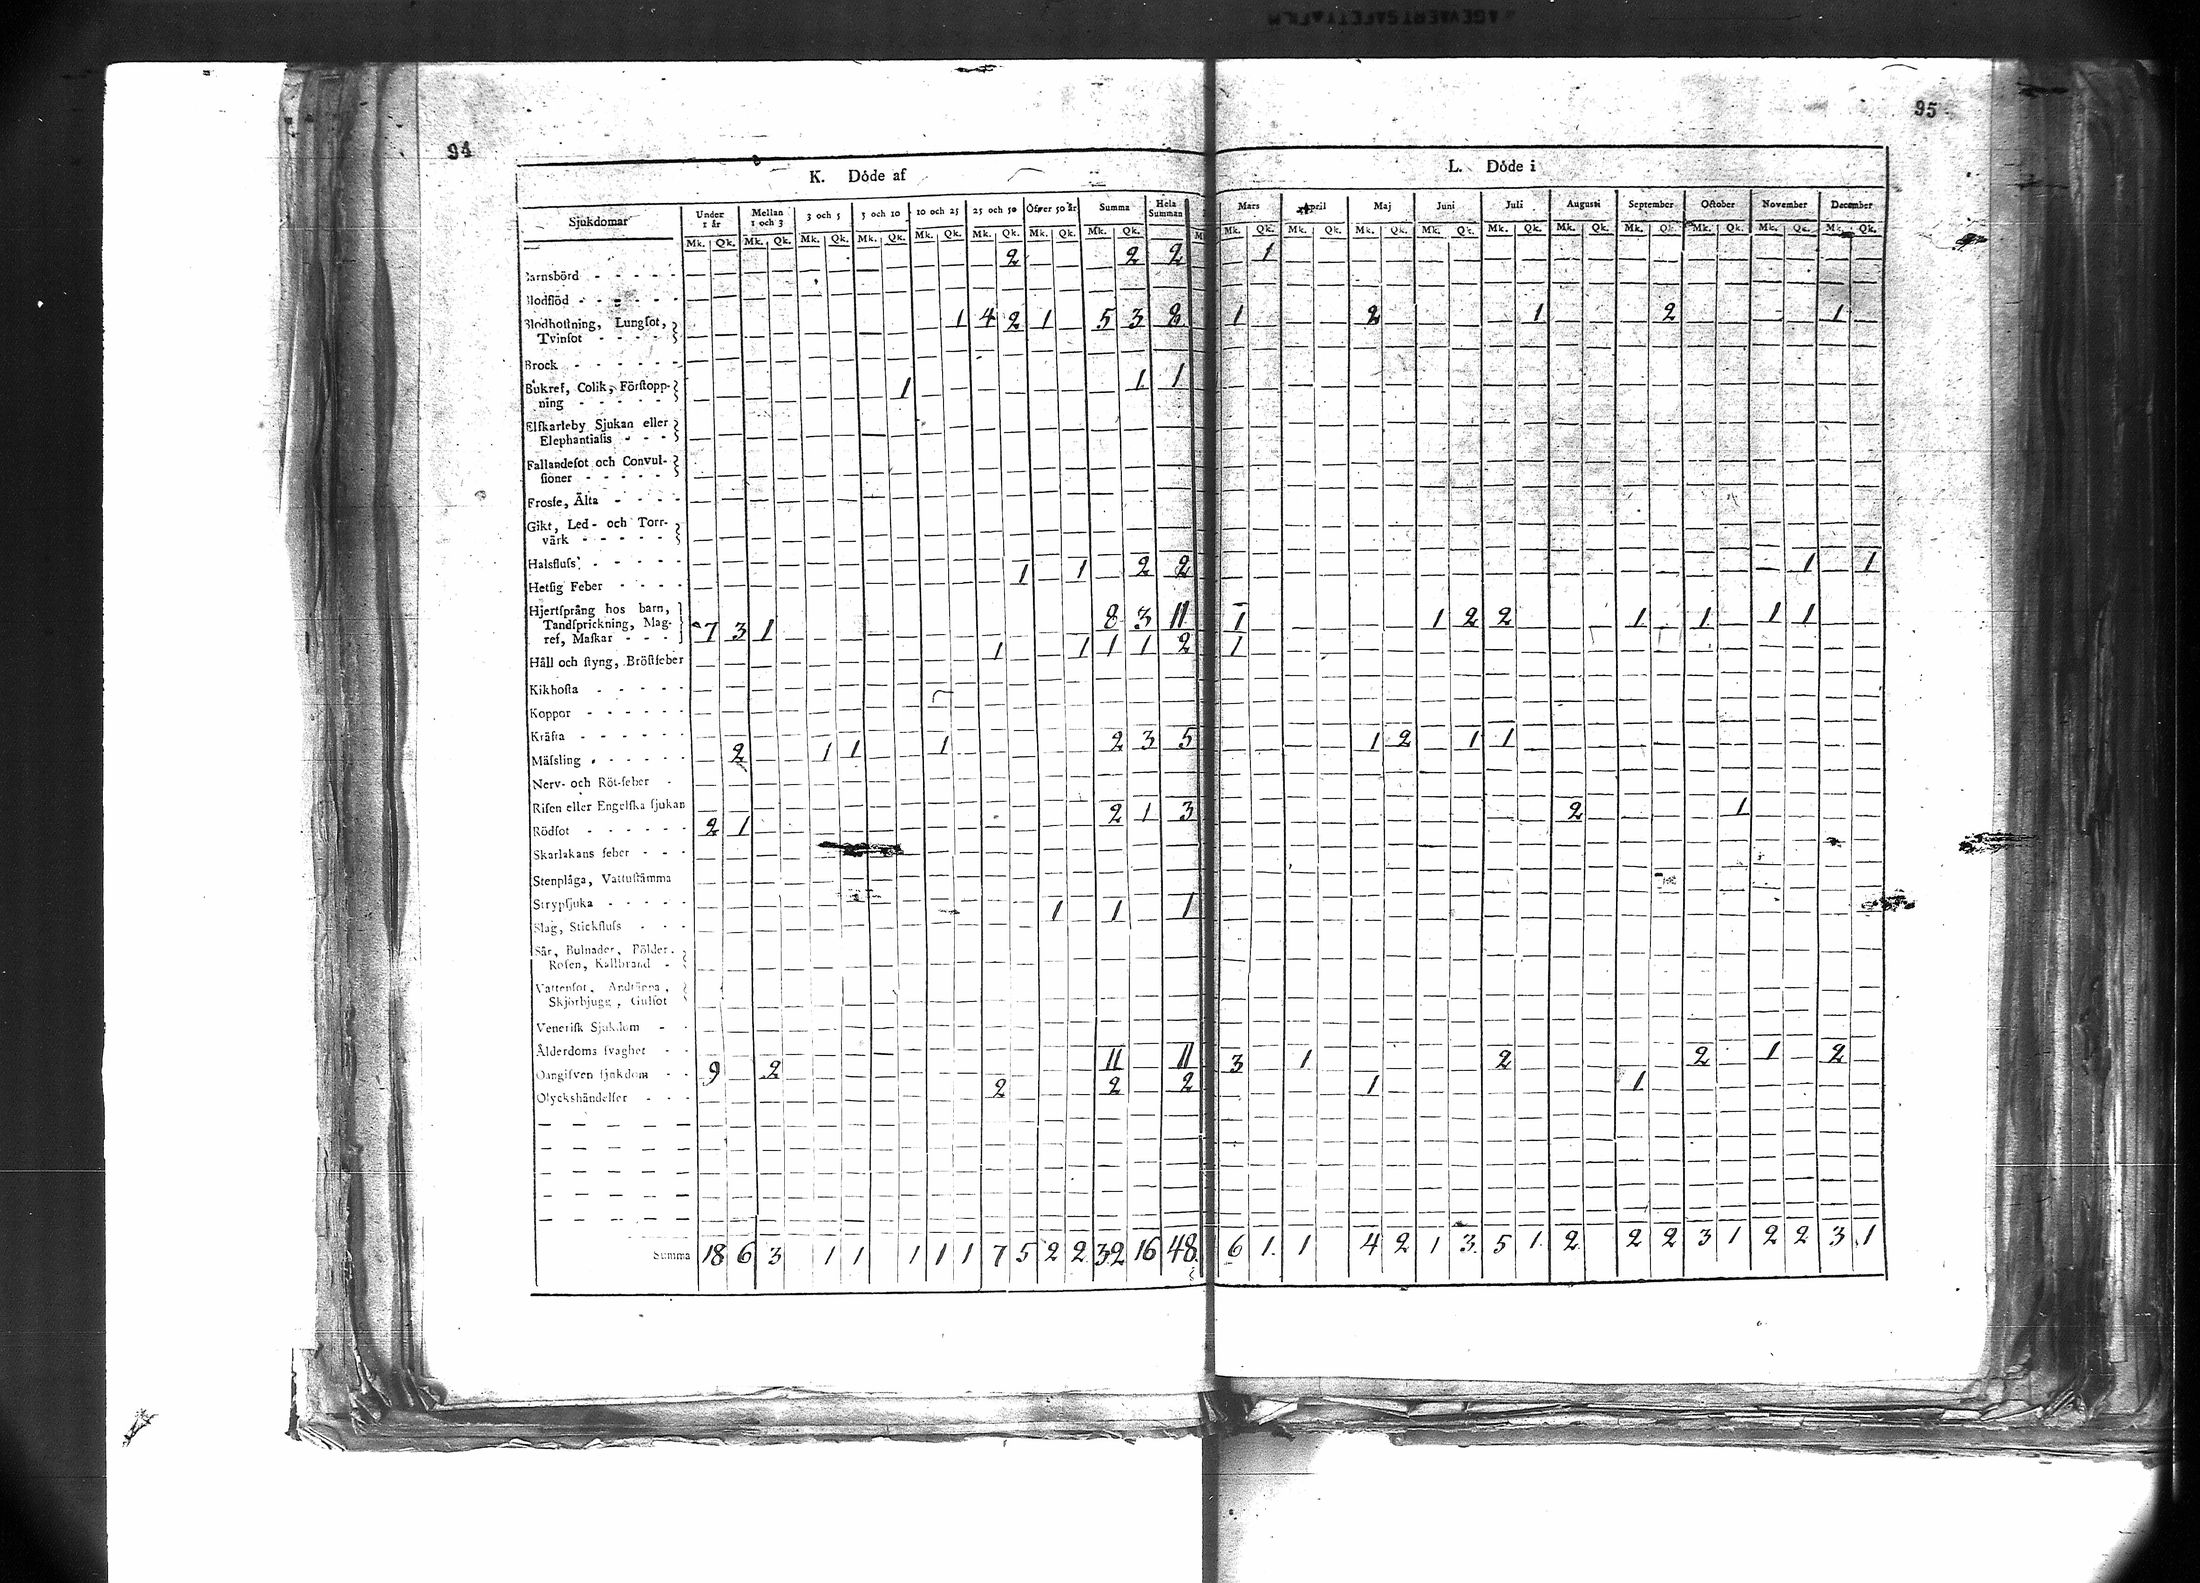 94
95
K. Dóde af
L. Dóde i
Sjukdomar
Under 1 år
Mellan 1 och 3
3 och 5
5 och 10
10 och 25
25 och 50
Öfver 50 år
Summa
Hela Summan
Mars
April
Maj
Juni
Juli
Augusti
September
October
November
December
Mk. Qk. Mk. Qk. Mk. Qk. Mk. Qk. Mk. Qk. Mk. Qk. Mk. Qk. Mk. Qk.
Mk. Qk. Mk. Qk. Mk. Qk. Mk. Qk. Mk. Qk. Mk. Qk. Mk. Qk. Mk. Qk. Mk. Qk. Mk. Qk.
arnsbörd - - - - - 2 2 2 1
lodflöd - - - - - -
Blodhostning, Lungsot,
Tvinsot - - - - 1 4 2 1 5 3 8 1 2 1 2 1
Brock - - - - - -
Bukref, Colik, Förstopp-
ning - - - - - 1 1 1
Elfkarleby Sjukan eller
Elephantiasis - - -
Fallandesot och Convul-
sioner - - - - -
Frosse, Älta - - - -
Gikt, Led- och Torr-
värk - - - - -
Halsfluss - - - - -
Hetsig Feber - - - - 1 1 2 2 1 1
Hjertsprång hos barn,
Tandsprickning, Mag-
ref, Maskar - - - 7 3 1 8 3 11 1 1 2 2 1 1 1 1
Håll och styng, Bröstfeber 1 1 1 1 2 1
Kikhosta - - - - -
Koppor - - - - - -
Kräfta - - - - - -
Mässling - - - - - - 2 1 1 1 2 3 5 1 2 1 1
Nerv- och Röt-feber -
Risen eller Engelska sjukan
Rödsot - - - - - - 2 1 2 1 3 2 1
Skarlakans feber - - -
Stenplåga, Vattustämma
Strypsjuka - - - - -
Slag, Stickfluss - - - 1 1 1
Sår, Bulnader, Bölder,
Rosen, Kallbrand -
Vattensot, Andtäppa,
Skjörbjugg, Gulsot
Venerisk Sjukdom - -
Ålderdoms svaghet - -
Oangifven sjukdom - - 9 2 11 11 3 1 2 2 1 2
Olyckshändelser - - - 2 2 2 1 1
Summa 18 6 3 1 1 1 1 1 7 5 2 2 32 16 48 6 1 1 4 2 1 3 5 1 2 2 2 3 1 2 2 3 1